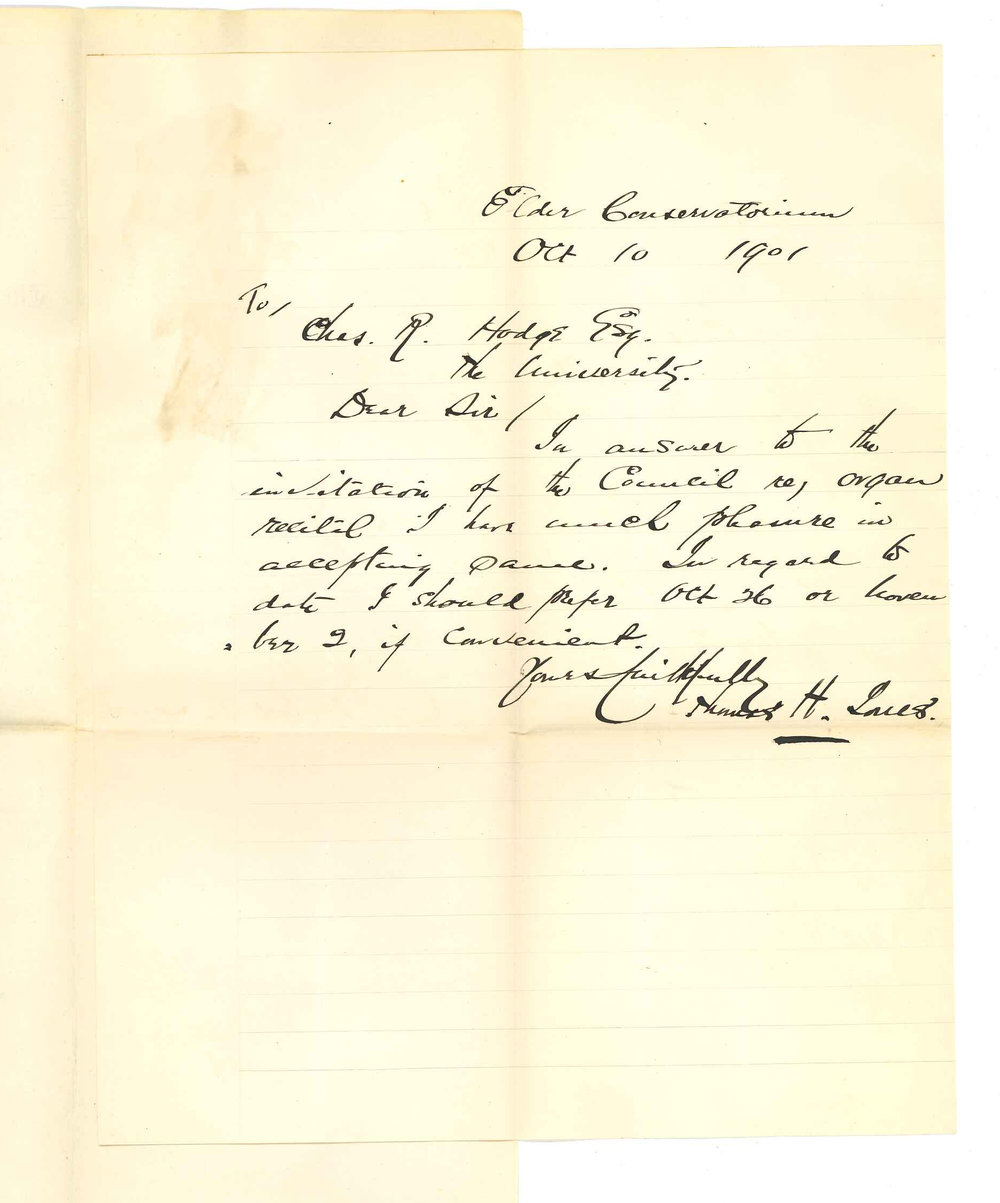 Elder Conservatorium
Oct 10 1901
To/
Chas. R. Hodge Esq.
The University.
Dear Sir/
In answer to the
invitation of the Council re, organ
recital I have much pleasure in
accepting same. In regard to
date I should prefer Oct 26 or Novem
=ber 2, if convenient.
Yours faithfully
Thomas H. Jones.